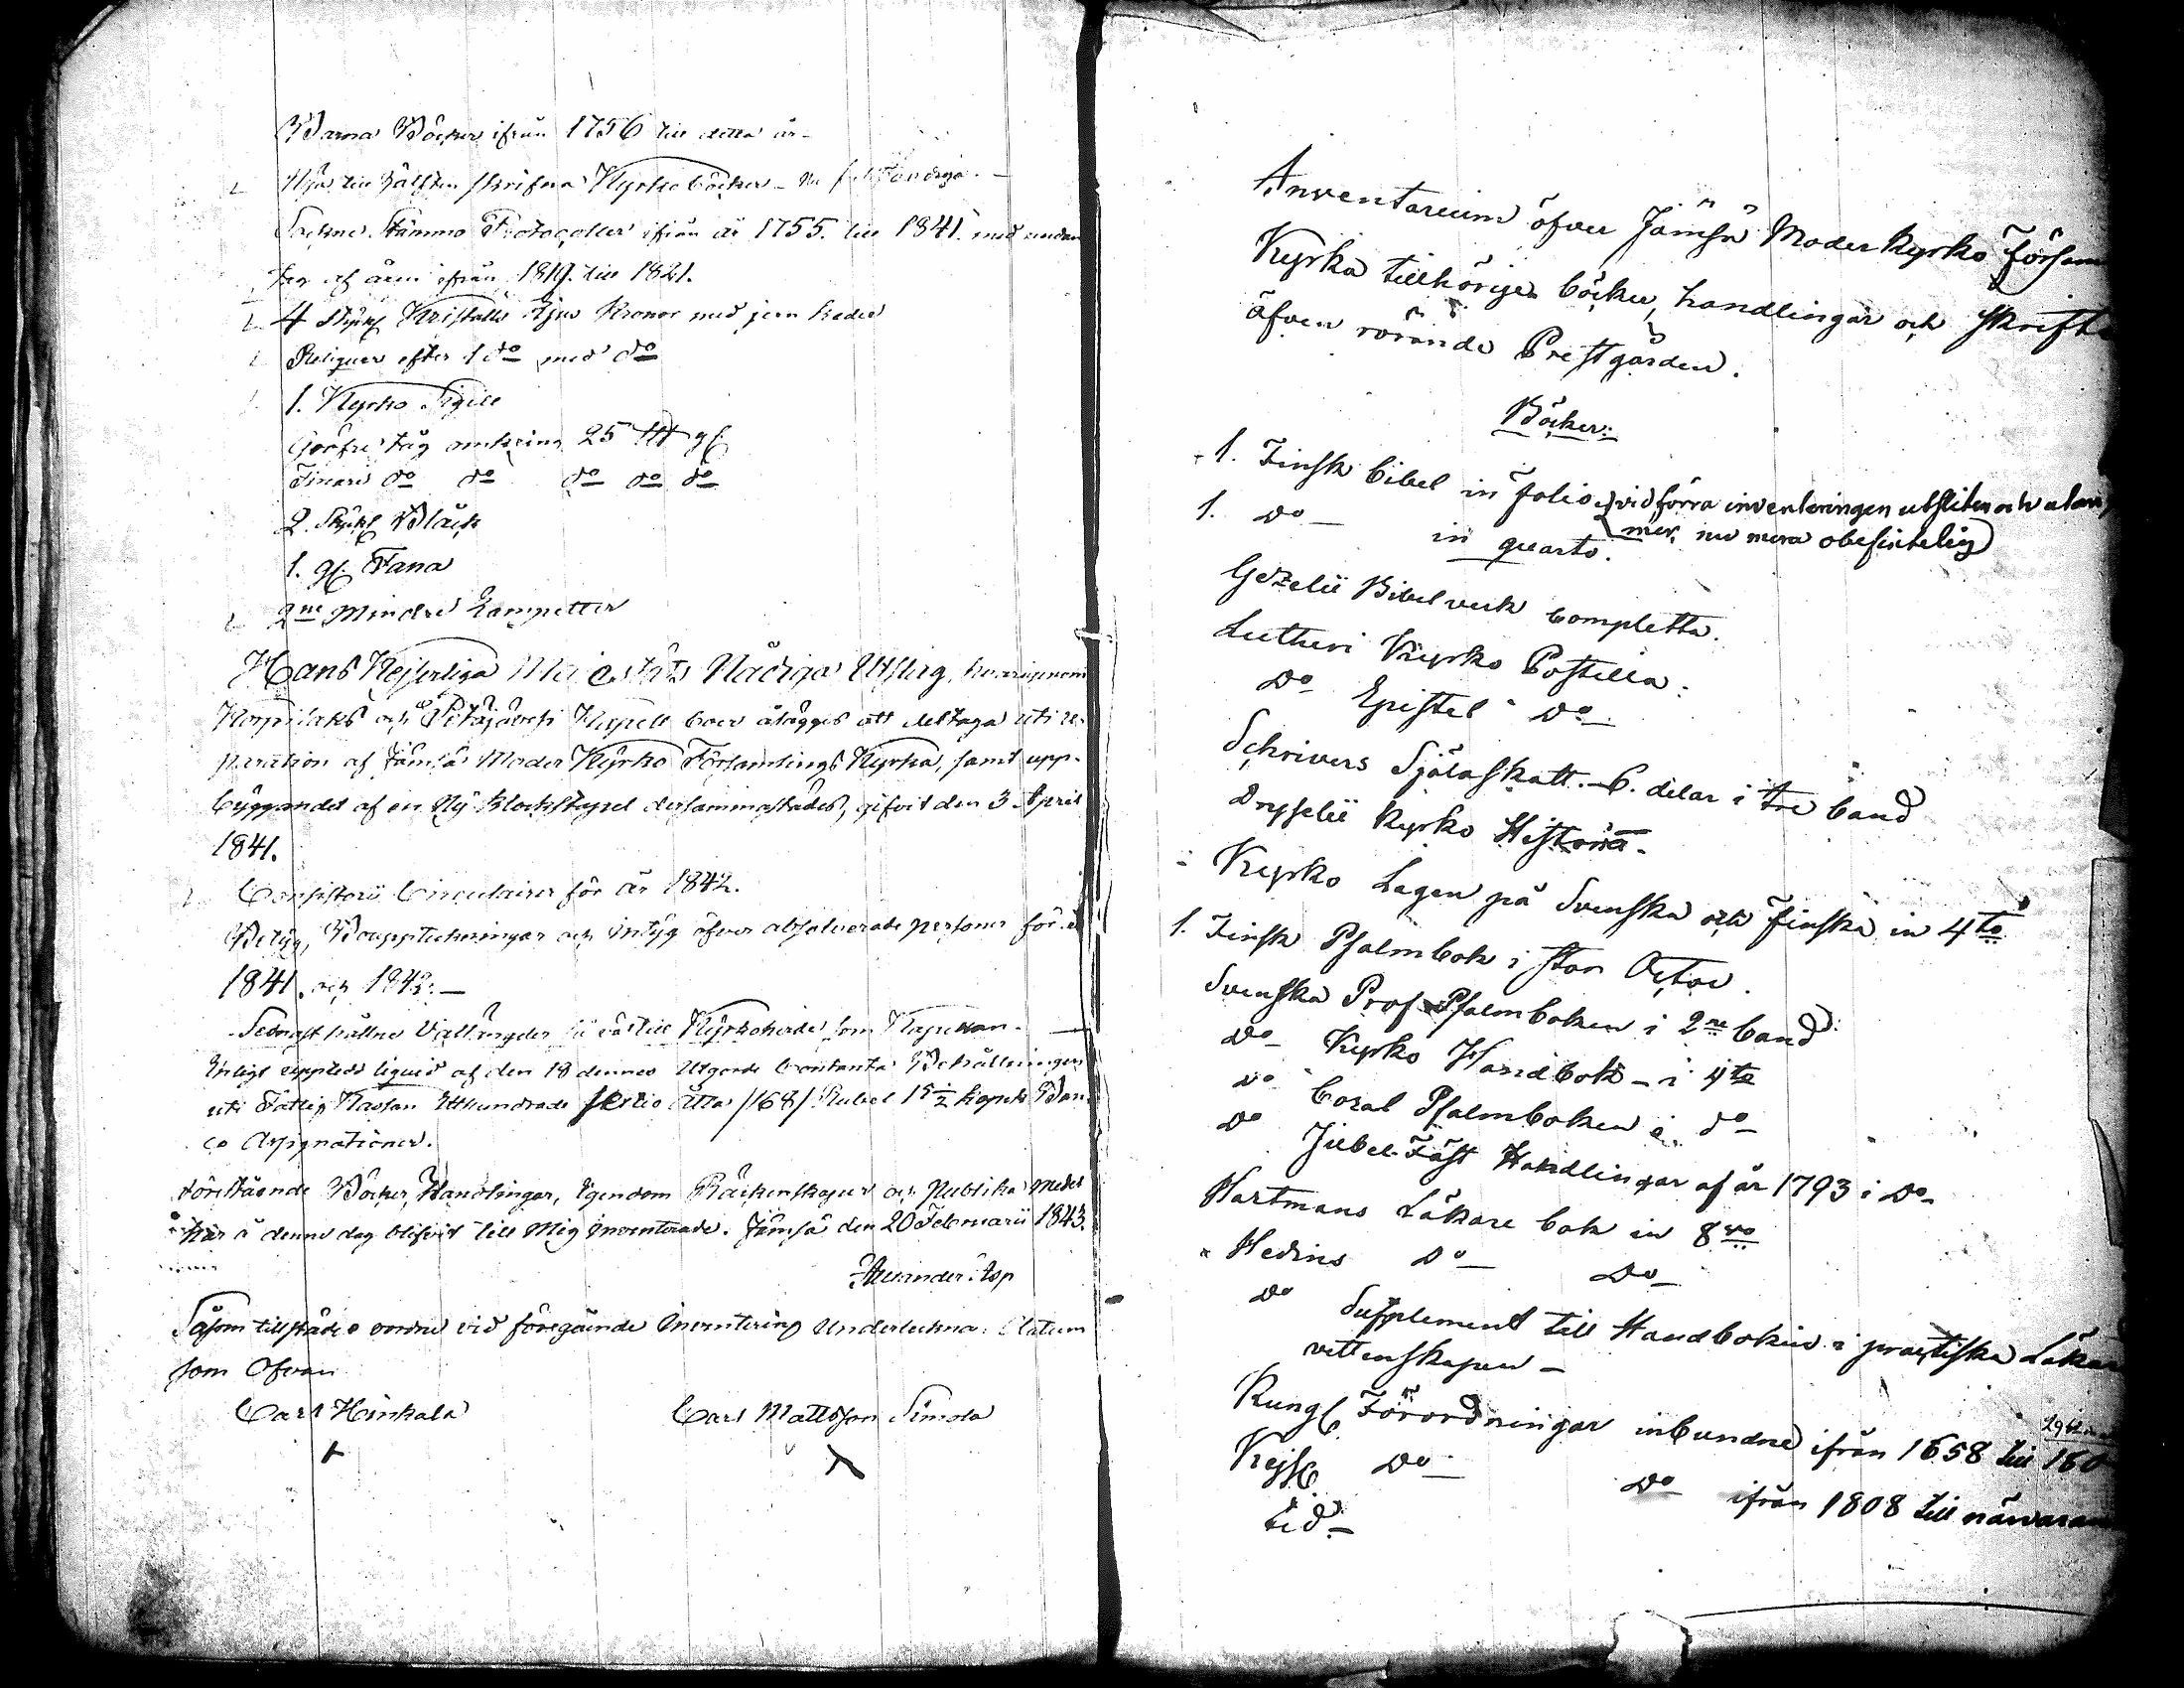 Barna Böcker ifrån 1756 till detta år
Nya till hälften skrifna Kyrko böcker
Sockne Stämmo Protocoller ifrån år 1755. till 1841. med undan
tag af åren ifrån 1819. till 1821.
4 Styck Kristalls Ljus Kronor med jern keder
Reliquer efter 1 do med do
1. Kyrko Sigill
Gröfre tåg omkring 25 gl
Finare do do do do do
2. Styck Bläck
1. gl. Fana
2ne Mindre Lampetter
Hans Kejserliga Majestäts Nådiga Utslag, hvarigenom
Korpilaks och Petäjävesi Kapell boer åläggas att deltaga uti re-
paration af Jämsä Moder Kyrko Församlings Kyrka, samt upp-
byggandet af en Ny Klockstapel dersammastädes, gifvit den 3 April
1841.
Consistorii Circulairer för år 1842.
Betyg, Bouppteckningar och intyg öfver absolverade personer för år
1841. och 1842. —
Sednast hållne Vallängder till Kyrkoherde som Kapellan.
Enligt upplest liquid af den 18 dennes Utgorde Contanta Behållningen
uti Fattig Kassan Etthundrade Sextio åtta /168/ Rubel 15 1/2 kopek Ban
co Assignationer.
Förestående Böcker, Handlingar, Egendom Räckenskaper och Publika medel
här å denne dag blifvit till Mig inventerade. Jämsä den 20 Februarii 1843.
Alexander Asp
Såsom tillstädes vordne vid föregående Inventering Underteckna. Datum
som Ofvan
Carl Hinkala
Carl Mattsson Simola
Inventarium öfver Jämsä Moder Kyrko Försam
Kyrka tillhörige böcker, handlingar och Skrifte
äfven rörande Prestgården.
Böcker:
1. Finsk bibel in folio (vid förra inventeringen utsliten och utan
1. do in quarto. mer, nu mera obefintelig)
Gezelii Bibelverk complett.
Lutheri Kyrko Postilla.
do Epistel do
Schrivers Själaskatt. 6. delar i tre band
Drysselii Kyrko Historia.
Kyrko Lagen på Svenska och Finska in 4to
1. Finsk Psalmbok i stor Octav.
Svenska Prof Psalmboken i 2ne band
do Kyrko Handbok - i 4to
do Coral Psalmboken i do
do Jubel-Fäst Handlingar af år 1793 i do
Hartmans Läkare bok in 8vo
Hedins do do
do Supplement till Handboken i practiska Läkare
vettenskapen -
Kungl Förordningar inbundne ifrån 1658 till 180
Kejsl do do ifrån 1808 till närvaran
tid -